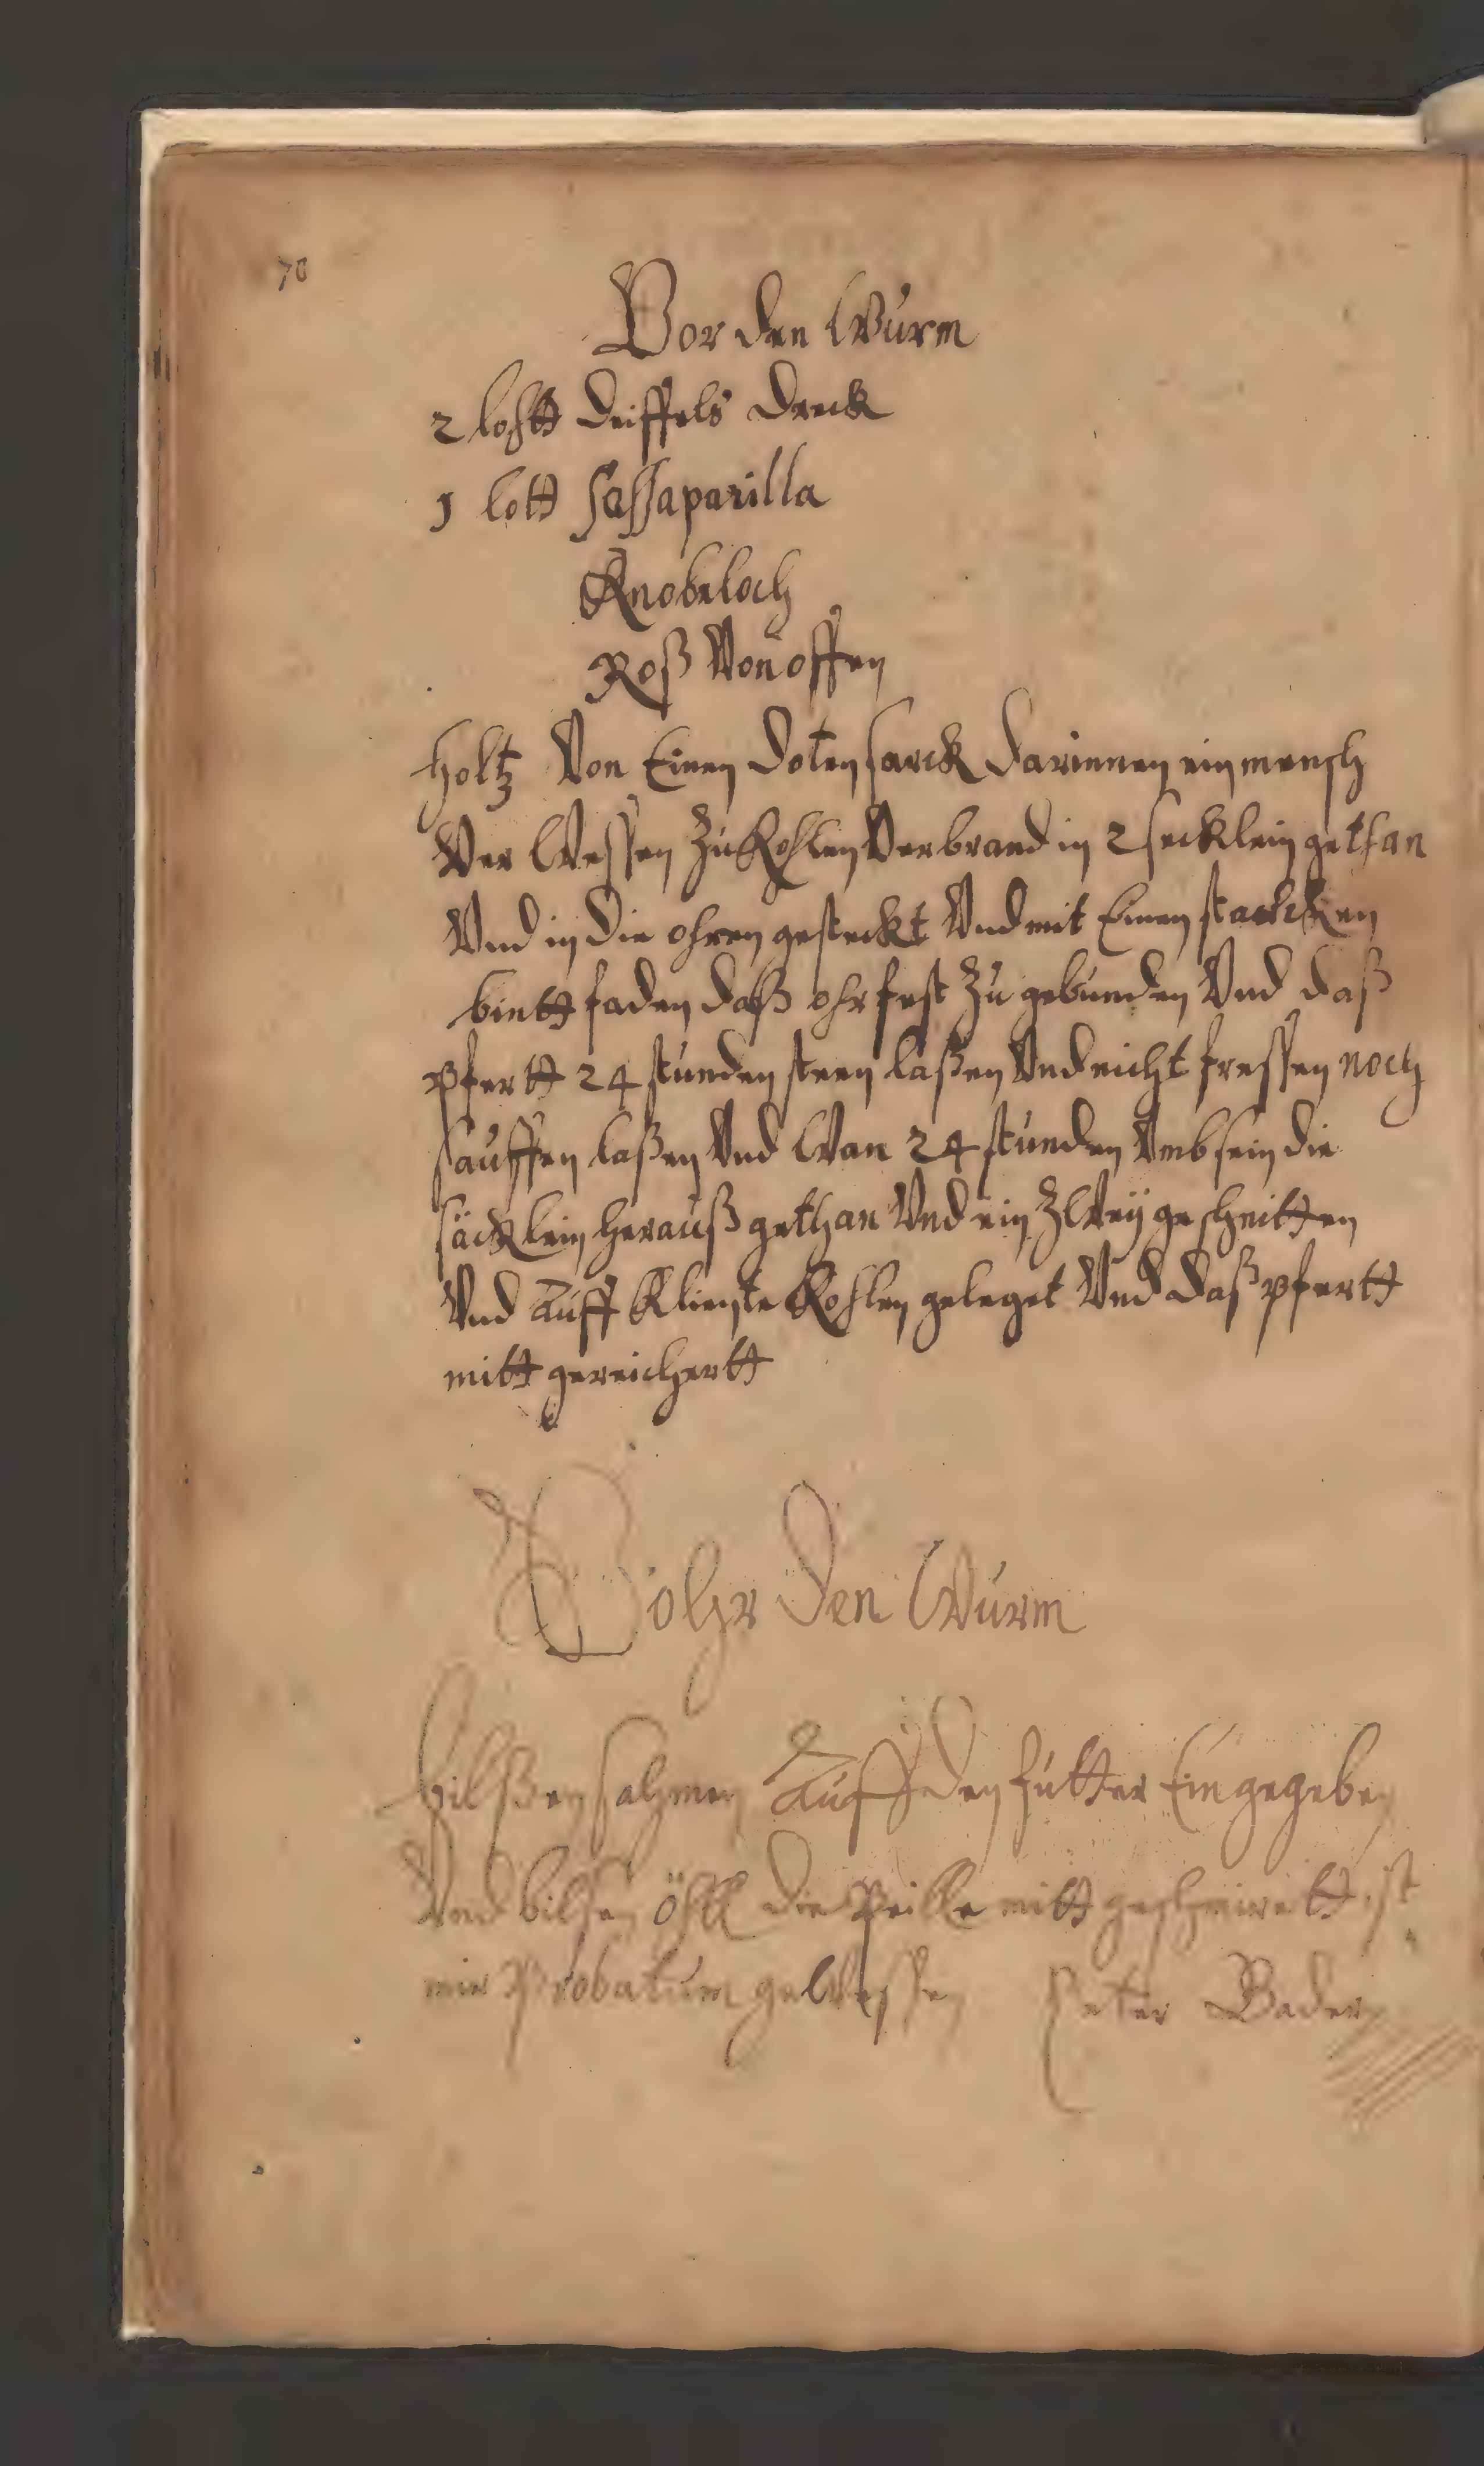 70
Vor den Wurm
2 lohtt deiffels dreck
1 lott Sassaparilla
Knobeloch
Roß Von offen
holtz Von Einen doten sarck darinnen ein mensch
Ver Wessen zu Kohlen Verbrand in 2 secklein gethan
Vnd in die ohren gesteckt Vnd mit Einen starcken
bintt faden daß ohr fest zu gebunden Vnd daß
pfertt 24 stunden steen laßen Vnd nicht fressen noch
sauffen laßen Vnd Wan 24 stunden Vmb sein die
säcklein herauß gethan Vnd ein zWey geschnitten
Vnd auff Kliente Kohlen geleget Vnd daß pfertt
mitt gereichertt
Vohr den Wurm
bilßen sahmen Auff den futter Ein gegeben
Vnd bilsen öhll die Peille mitt geschmirett ist
mir Probatum geWessen Peter Bader